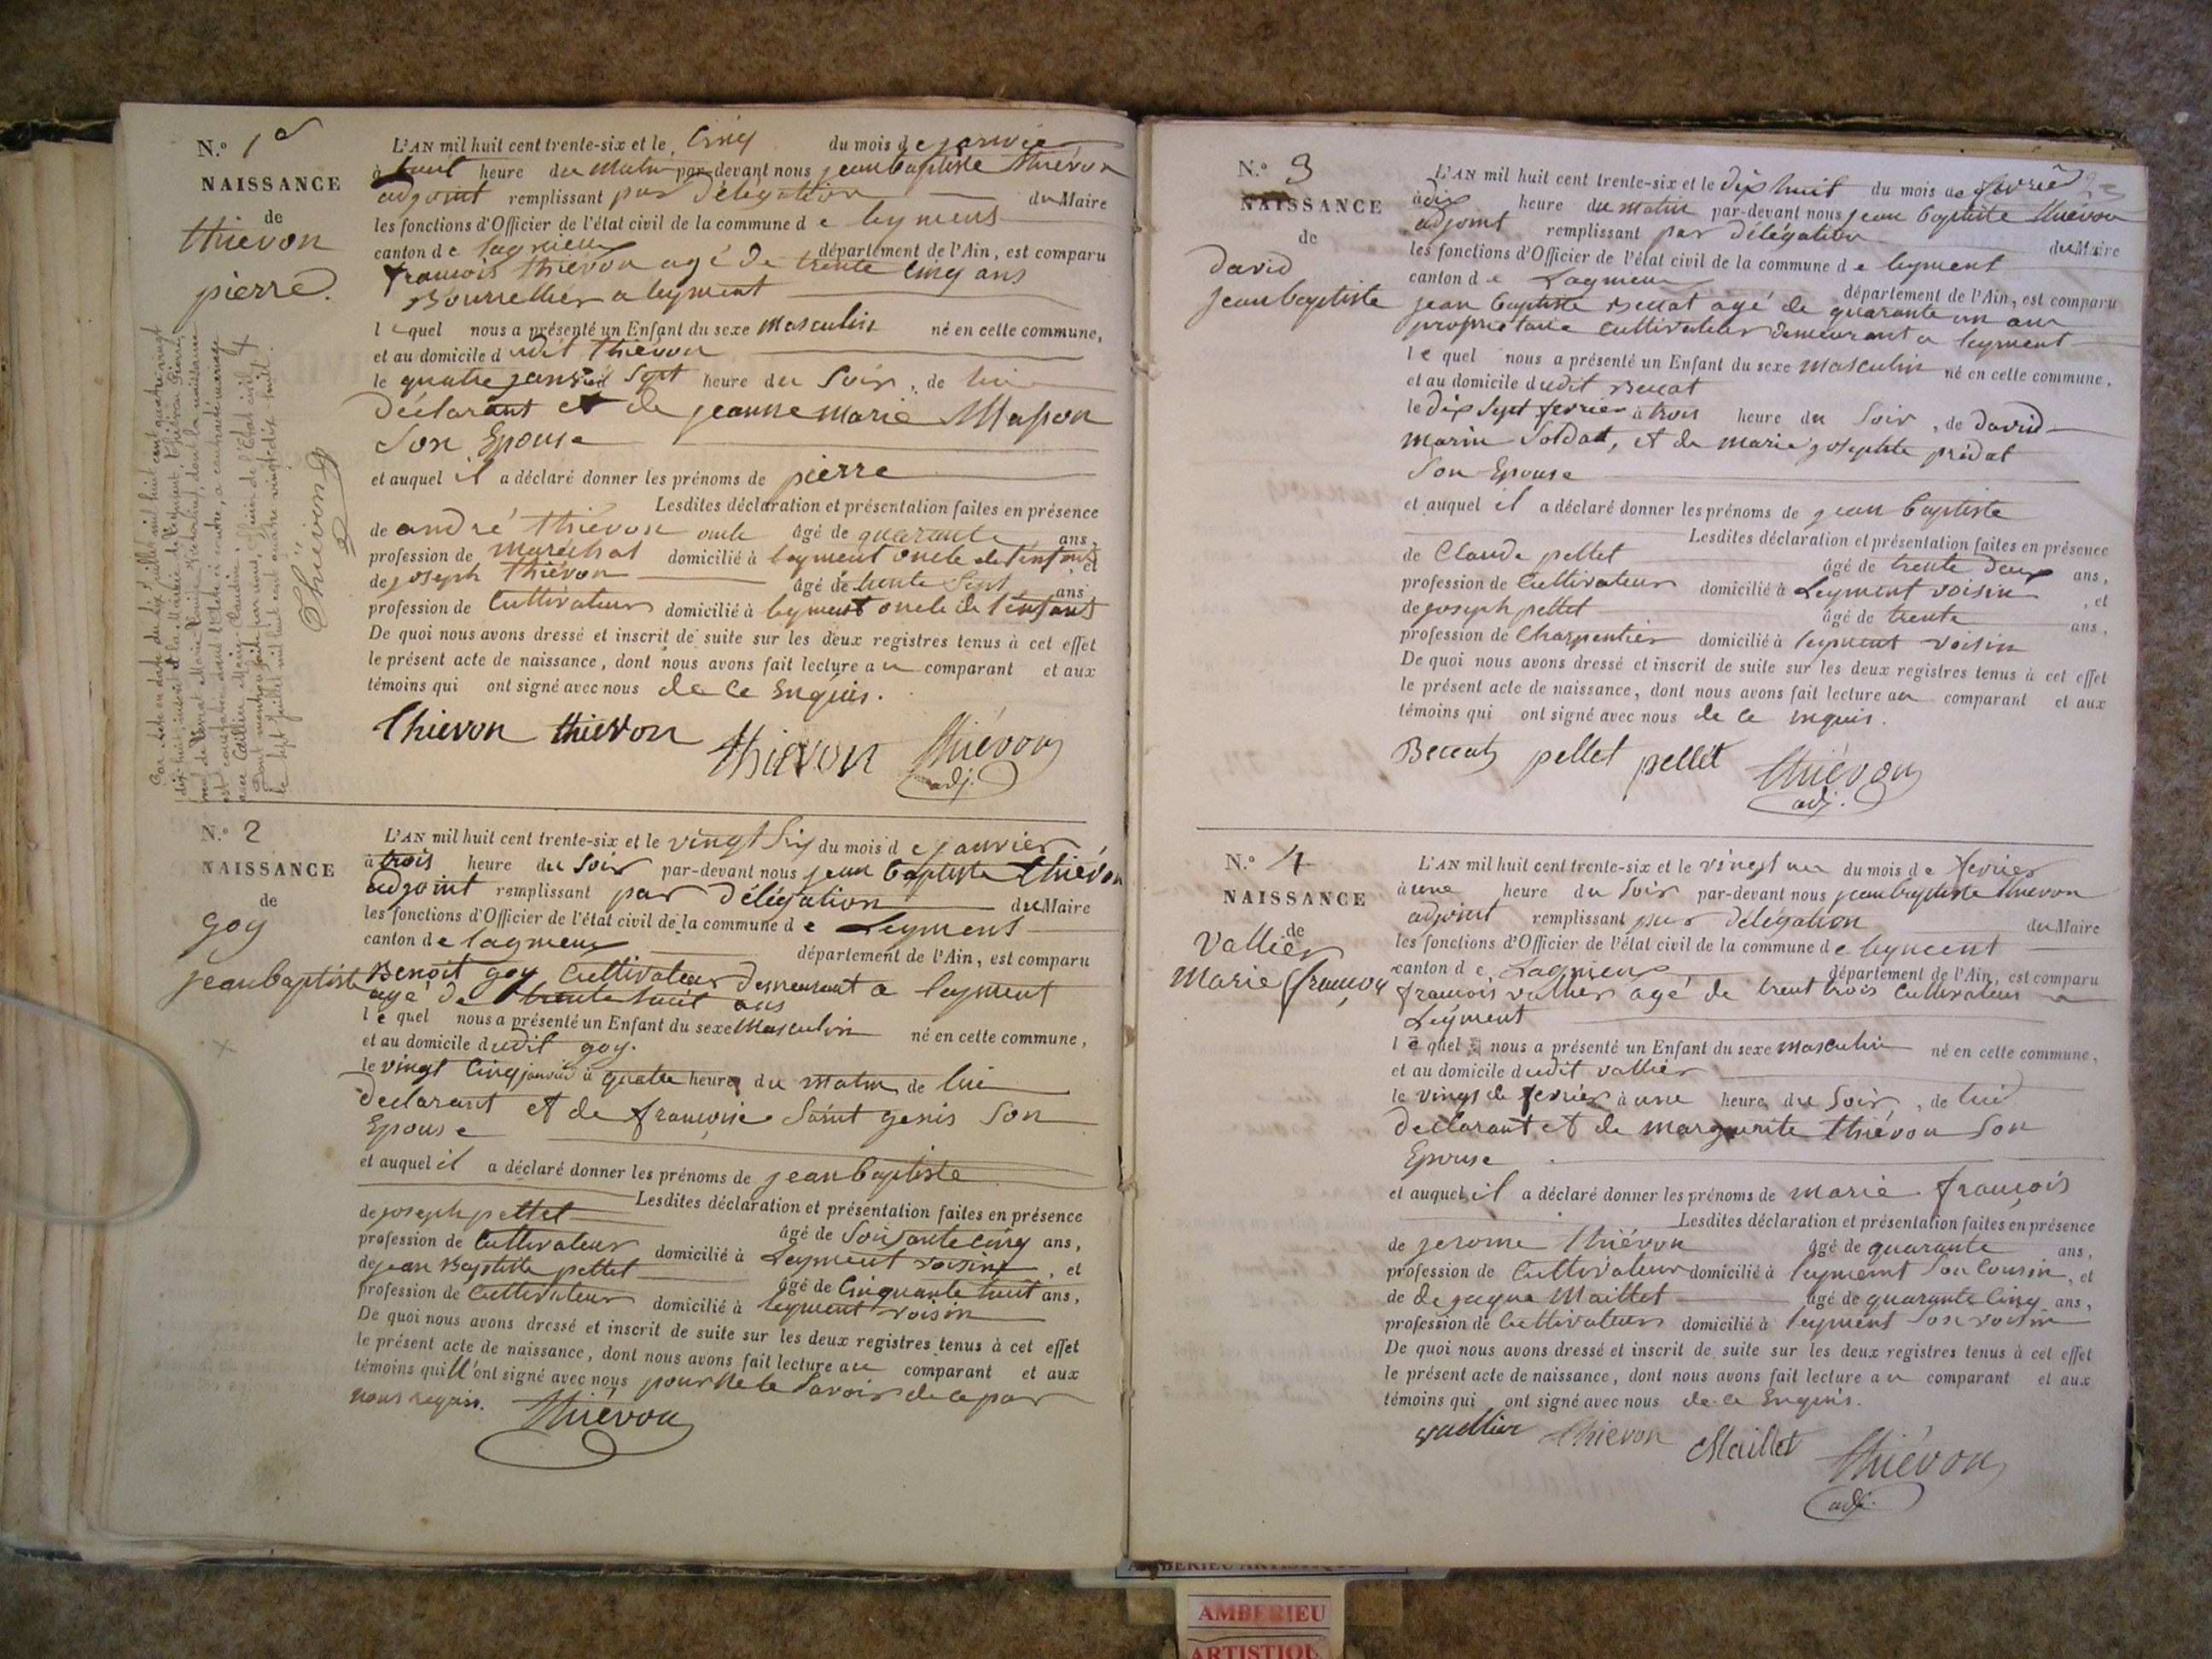 N.º 1er
NAISSANCE
de
thiévon
pierre.
L'AN mil huit cent trente-six et le cinq du mois de janvier
à huit heure du matin par-devant nous jean baptiste thiévon
adjoint remplissant par délégation du Maire
les fonctions d'Officier de l'état civil de la commune de leyment
canton de lagnieu département de l'Ain, est comparu
françois thiévon agé de trente cinq ans
Bourrellier a leyment
lequel nous a présenté un Enfant du sexe masculin né en cette commune,
et au domicile dudit thiévon
le quatre janvier sept heure du soir, de lui
déclarant et de jeanne marie Masson
son Epouse
et auquel il a déclaré donner les prénoms de pierre
Lesdites déclaration et présentation faites en présence
de andré thiévon oncle âgé de quarante ans,
profession de maréchal domicilié à leyment oncle de l'enfant et
de joseph thiévon âgé de trente sept ans
profession de cultivateur domicilié à leyment oncle de l'enfant
De quoi nous avons dressé et inscrit de suite sur les deux registres tenus à cet effet
le présent acte de naissance, dont nous avons fait lecture au comparant et aux
témoins qui ont signé avec nous de ce Enquis.
thievon thievon thievon thiévon
adj.
Par acte en date du dix juillet mil huit cent quatre vingt
dix-huit, inscrit à la Mairie de Leyment, Thiévon Pierre,
est constatée dans l'acte ci contre, a contracté mariage
avec Marie Claudine
Dont mention faite par nous, Officier de l'Etat civil
le sept juillet mil huit cent quatre vingt-dix-huit.
Thiévon
N.º 2
NAISSANCE
de
goy
jean baptiste
L'AN mil huit cent trente-six et le vingt six du mois de janvier
à trois heure du soir par-devant nous jean baptiste thiévon
adjoint remplissant par délégation du Maire
les fonctions d'Officier de l'état civil de la commune de Leyment
canton de lagnieu département de l'Ain, est comparu
Benoit goy cultivateur demeurant a leyment
agé de trente huit ans
lequel nous a présenté un Enfant du sexe masculin né en cette commune,
et au domicile dudit goy.
le vingt cinq janvier à quatre heure du matin de lui
declarant et de françoise Saint genis son
Epouse
et auquel il a déclaré donner les prénoms de jean baptiste
Lesdites déclaration et présentation faites en présence
de joseph pellet âgé de soixante cinq ans,
profession de cultivateur domicilié à Leyment voisin, et
de jean Baptiste pellet âgé de cinquante huit ans,
profession de cultivateur domicilié à leyment voisin
De quoi nous avons dressé et inscrit de suite sur les deux registres tenus à cet effet
le présent acte de naissance, dont nous avons fait lecture au comparant et aux
témoins qui n'ont signé avec nous pour ne le savoir de ce par
nous requis. thiévon
N.º 3
NAISSANCE
de
david
jean baptiste
L'AN mil huit cent trente-six et le dix huit du mois de fevrier 23
à dix heure du matin par-devant nous jean baptiste thiévon
adjoint remplissant par délégation du Maire
les fonctions d'Officier de l'état civil de la commune de leyment
canton de Lagnieu département de l'Ain, est comparu
jean baptiste Beccat agé de quarante un ans
propriétaire cultivateur demeurant a leyment
lequel nous a présenté un Enfant du sexe masculin né en cette commune,
et au domicile dudit Beccat
le dix sept fevrier à trois heure du soir, de david
marin soldat, et de marie josephte prédat
son Epouse
et auquel il a déclaré donner les prénoms de jean baptiste
Lesdites déclaration et présentation faites en présence
de Claude pellet âgé de trente deux ans,
profession de cultivateur domicilié à Leyment voisin, et
de joseph pellet âgé de trente ans,
profession de charpentier domicilié à leyment voisin
De quoi nous avons dressé et inscrit de suite sur les deux registres tenus à cet effet
le présent acte de naissance, dont nous avons fait lecture au comparant et aux
témoins qui ont signé avec nous de ce inquis.
Beccat pellet pellet thiévon
adj.
N.º 4
NAISSANCE
de
Vallier
Marie françois
L'AN mil huit cent trente-six et le vingt un du mois de fevrier
à une heure du soir par-devant nous jean baptiste thiévon
adjoint remplissant par délégation du Maire
les fonctions d'Officier de l'état civil de la commune de leyment
canton de Lagnieu département de l'Ain, est comparu
françois vallier agé de trent trois cultivateur a
Leyment
lequel nous a présenté un Enfant du sexe masculin né en cette commune,
et au domicile dudit vallier
le vingt de fevrier à une heure du soir, de lui
declarant et de marguerite thiévon son
Epouse
et auquel il a déclaré donner les prénoms de marie françois
Lesdites déclaration et présentation faites en présence
de jerome thiévon âgé de quarante ans,
profession de cultivateur domicilié à leyment son cousin, et
de de jaque Maillet âgé de quarante cinq ans,
profession de cultivateur domicilié à leyment son voisin
De quoi nous avons dressé et inscrit de suite sur les deux registres tenus à cet effet
le présent acte de naissance, dont nous avons fait lecture au comparant et aux
témoins qui ont signé avec nous de ce Enquis.
vallier thievon Maillet thiévon
adj.
AMBERIEU ARTISTIQUE
AMBERIEU
ARTISTIQU